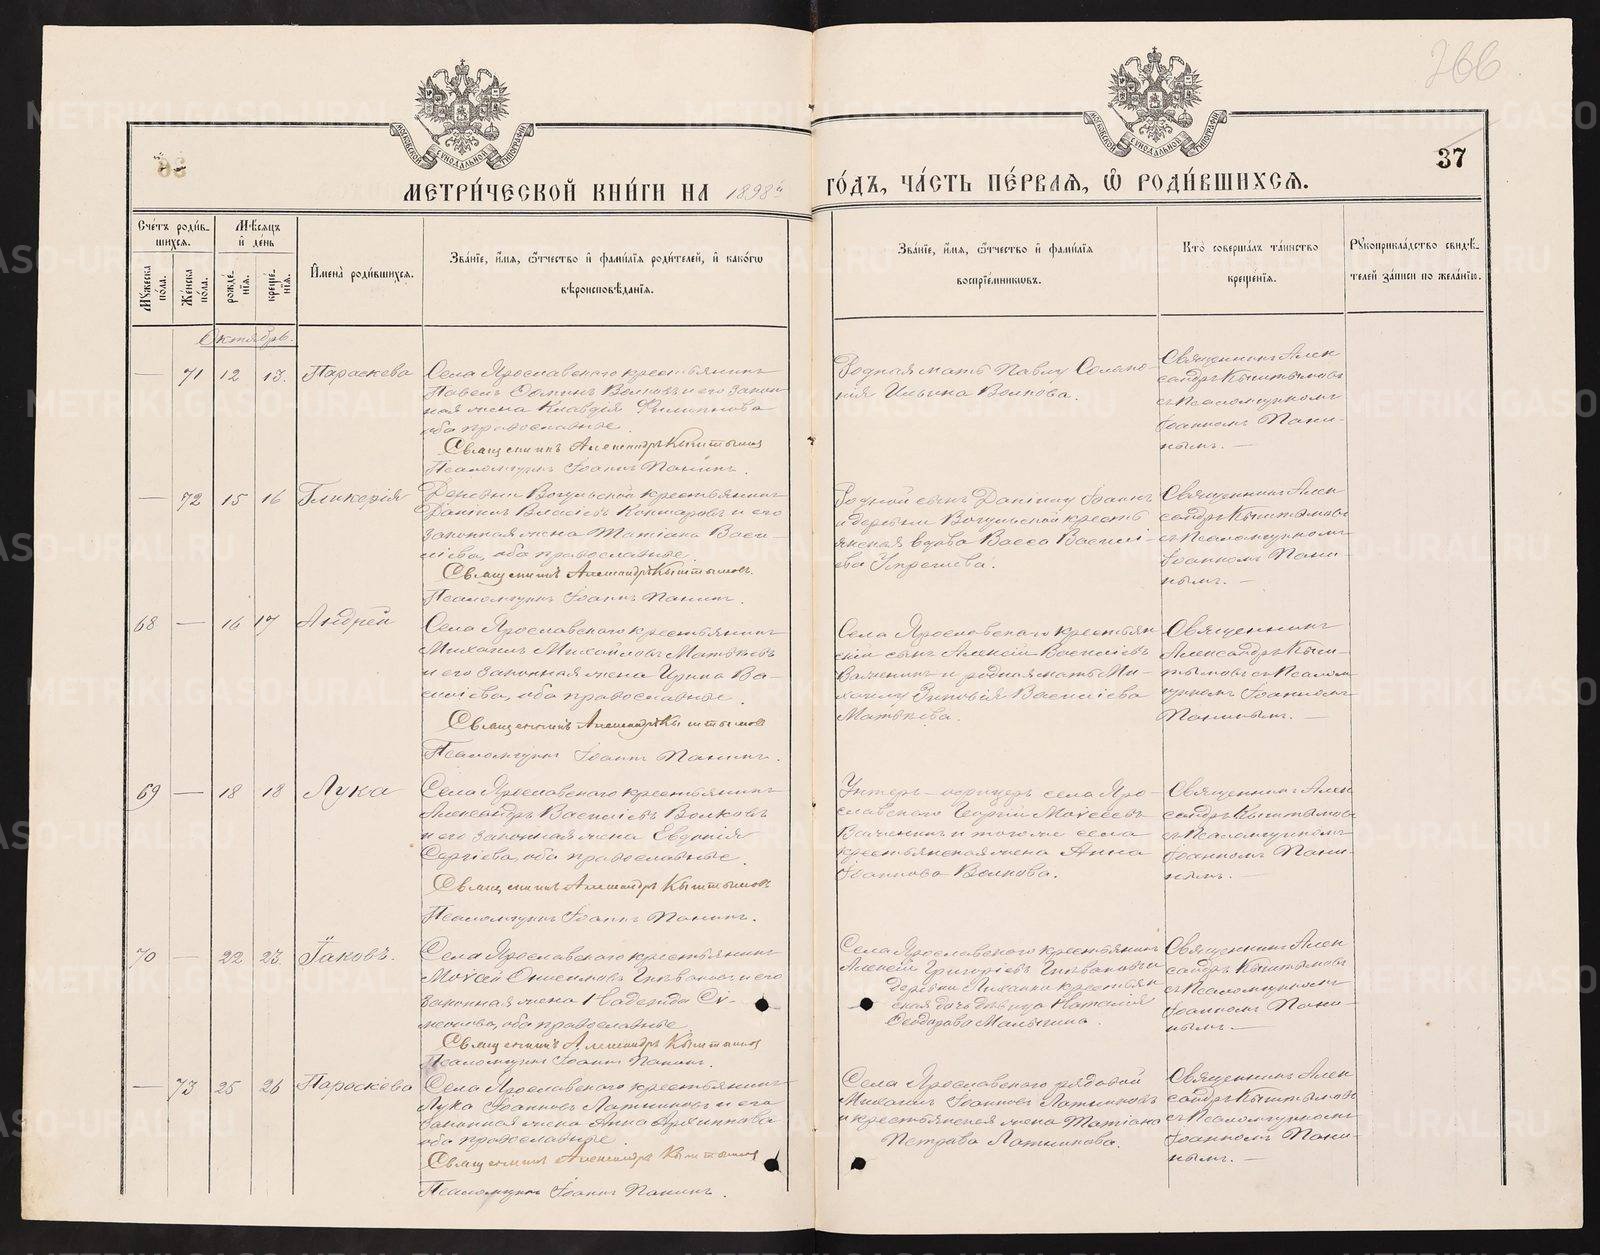 266
37
МЕТРИ́ЧЕСКОЙ КНИ́ГИ НА 1898й ГО́ДЪ, ЧА́СТЬ ПЕ́РВАѦ, Ѽ РОДИ́ВШИХСѦ.
МОСКОВСКОЙ СѴНОДАЛЬНОЙ ТИПОГРАФІИ
МОСКОВСКОЙ СѴНОДАЛЬНОЙ ТИПОГРАФІИ
Сче́тъ роди́в-
шихсѧ.
Мꙋжеска по́ла.
Же́нска по́ла.
Мѣ́сѧцъ
и҆ де́нь
рожде́-
нїѧ.
креще́-
нїѧ.
И҆мена̀ роди́вшихсѧ.
Зва́нїе, и҆́мѧ, ѻ҆́тчество и҆ фами́лїѧ роди́телей, и҆ како́гѡ
вѣроисповѣ́данїѧ.
Зва́нїе, и҆́мѧ, ѻ҆́тчество и҆ фами́лїѧ
воспрїе́мникѡвъ.
Кто̀ соверша́лъ та́инство
креще́нїѧ.
Рꙋкоприкла́дство свидѣ́-
телей за́писи по жела́нїю.
Октябрь.
— 71 12 13. Параскева
Села Ярославского крестьянинъ
Павелъ Ѳоминъ Волковъ и его закон-
ная жена Клавдія Филиппова
оба православные.
Священникъ Александръ Кыштымов
Псаломщикъ Іоаннъ Панинъ.
Родная мать Павлу Соломо-
нія Ильина Волкова.
Священникъ Алек
сандръ Кыштымовъ
съ Псаломщикомъ
Іоанномъ Пани-
нымъ. —
— 72 15 16 Гликерія
Деревни Вогульской крестьянинъ
Даніилъ Власіевъ и его
законная жена Татіана Васи-
ліева, оба православные.
Священникъ Александръ Кыштымовъ.
Псаломщикъ Іоаннъ Панинъ.
Родной сынъ Даніилу Іоаннъ
и деревни Вогульской кресть
янская вдова Васса Василі-
ева
Священникъ Алек
сандръ Кыштымовъ
съ Псаломщикомъ
Іоанномъ Пани-
нымъ. —
68 — 16 17 Андрей
Села Ярославского крестьянинъ
Михаилъ Михаиловъ Матвѣевъ
и его законная жена Ирина Ва-
силіева, оба православные.
Священникъ Александръ Кыштымовъ
Псаломщикъ Іоаннъ Панинъ.
Села Ярославского крестьян
скій сынъ Алексій Василіевъ
и родная мать Ми-
хаилу Зиновія Василіева
Матвѣева.
Священникъ
Александръ Кыш-
тымовъ съ Псалом
щикомъ Іоанномъ
Панинымъ. —
69 — 18 18 Лука
Села Ярославского крестьянинъ
Александръ Василіевъ Волковъ
и его законная жена Евдокія
Сергіева, оба православные.
Священникъ Александръ Кыштымовъ
Псаломщикъ Іоаннъ Панинъ.
Унтеръ-офицеръ села Яро-
славского Георгій Моѵсеевъ
и тогоже села
крестьянская жена Анна
Іоаннова Волкова.
Священникъ Алек
сандръ Кыштымовъ
съ Псаломщикомъ
Іоанномъ Пани-
нымъ. —
70 — 22 23. Іаковъ.
Села Ярославского крестьянинъ
Моѵсей Онисимовъ и его
законная жена Надежда Сі-
меонова, оба православные.
Священникъ Александръ Кыштымов
Псаломщикъ Іоаннъ Панинъ.
Села Ярославского крестьянинъ
Алексій Григоріевъ и
деревни крестьян
ская дочь дѣвица Наталія
Ѳеодорова Малыгина.
Священникъ Алек
сандръ Кыштымовъ
съ Псаломщикомъ
Іоанномъ Пани-
нымъ. —
— 73 25 26 Параскева
Села Ярославского крестьянинъ
Лука Іоанновъ Латниковъ и его
законная жена Анна Архиппова
оба православные.
Священникъ Александръ Кыштымов
Псаломщикъ Іоаннъ Панинъ.
Села Ярославского рядовой
Михаилъ Іоанновъ Латниковъ
и крестьянская жена Татіана
Петрова Латникова.
Священникъ Алек
сандръ Кыштымовъ
съ Псаломщикомъ
Іоанномъ Пани-
нымъ. —
METRIKI.GASO-URAL.RU